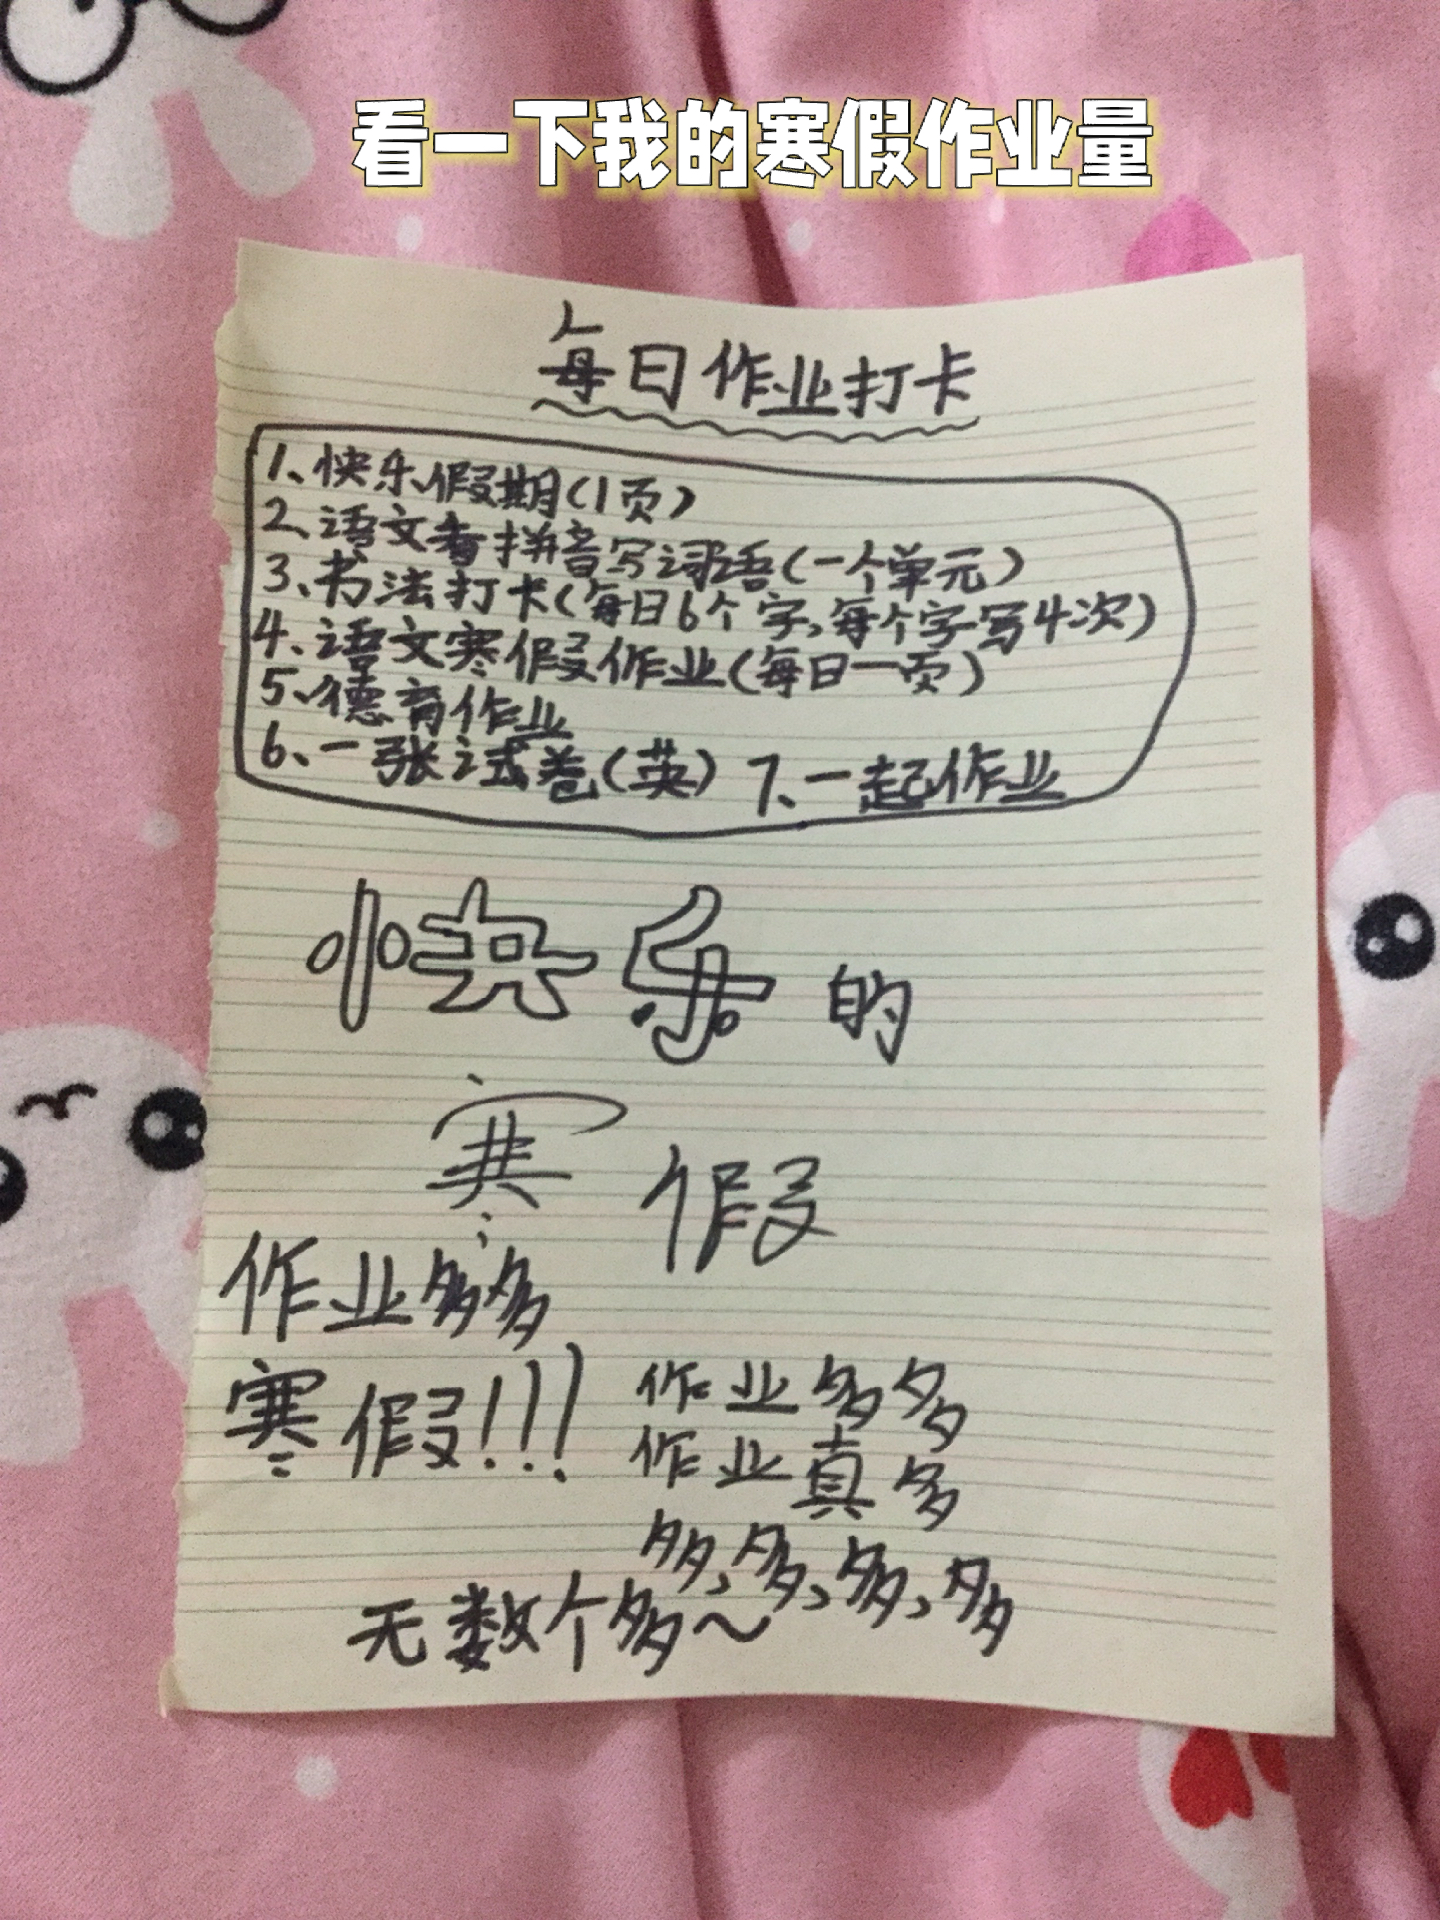 看一下我的寒假作业量
每日作业打卡
1、快乐假期(1页)
2、语文看拼音写词语(一个单元)
3、书法打卡(每日6个字,每个字写4次)
4、语文寒假作业(每日一页)
5、德育作业
6、一张试卷(英) 7、一起作业
快乐的
寒假
作业多多
寒假!!!
作业多多
作业真多
多,多,多,多
无数个多~